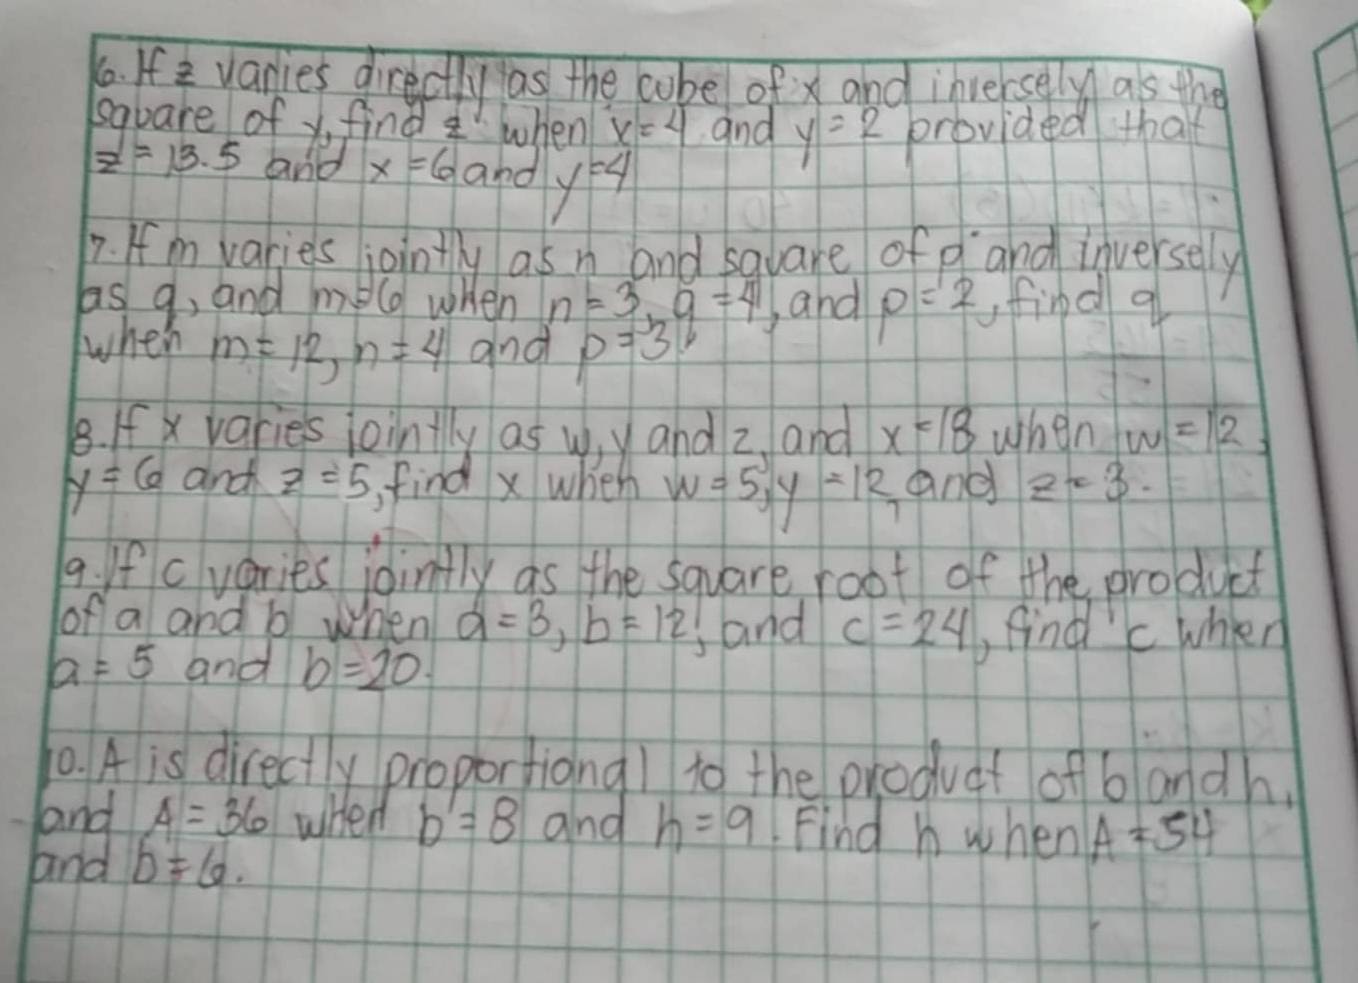 6. If z varies directly as the cube of x and inversely as the
square of y, find z when x=4 and y=2 provided that
z=13.5 and x=6 and y=4
7. If m varies jointly as n and square of p and inversely
as q, and m=6 when n=3, q=4, and p=2, find q
when m=12, n=4 and p=3.
8. If x varies jointly as w, y and z, and x=18 when w=12,
y=6 and z=5, find x when w=5, y=12, and z=3.
9. If c varies jointly as the square root of the product
of a and b when a=3, b=12, and c=24, find c when
a=5 and b=20.
10. A is directly proportional to the product of b and h,
and A=36 when b=8 and h=9. Find h when A=54
and b=6.